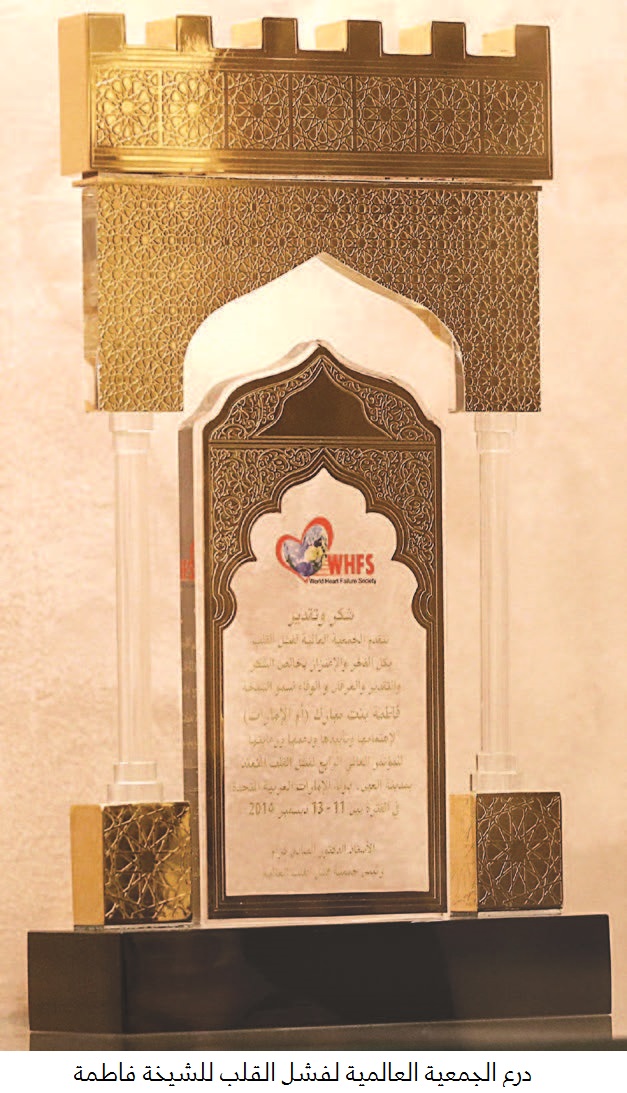 WHFS
World Heart Failure Society
شكر وتقدير
تتقدم الجمعية العالمية لفشل القلب
بكل الفخر والاعتزاز بخالص الشكر
والتقدير والعرفان والوفاء لسمو الشيخة
فاطمة بنت مبارك (أم الإمارات)
لاهتمامها وتأييدها ودعمها ورعايتها
للمؤتمر العالمي الرابع لفشل القلب المنعقد
بمدينة العين، دولة الإمارات العربية المتحدة
في الفترة بين 11 - 13 ديسمبر 2014
الأستاذ الدكتور
رئيس جمعية فشل القلب العالمية
درع الجمعية العالمية لفشل القلب للشيخة فاطمة